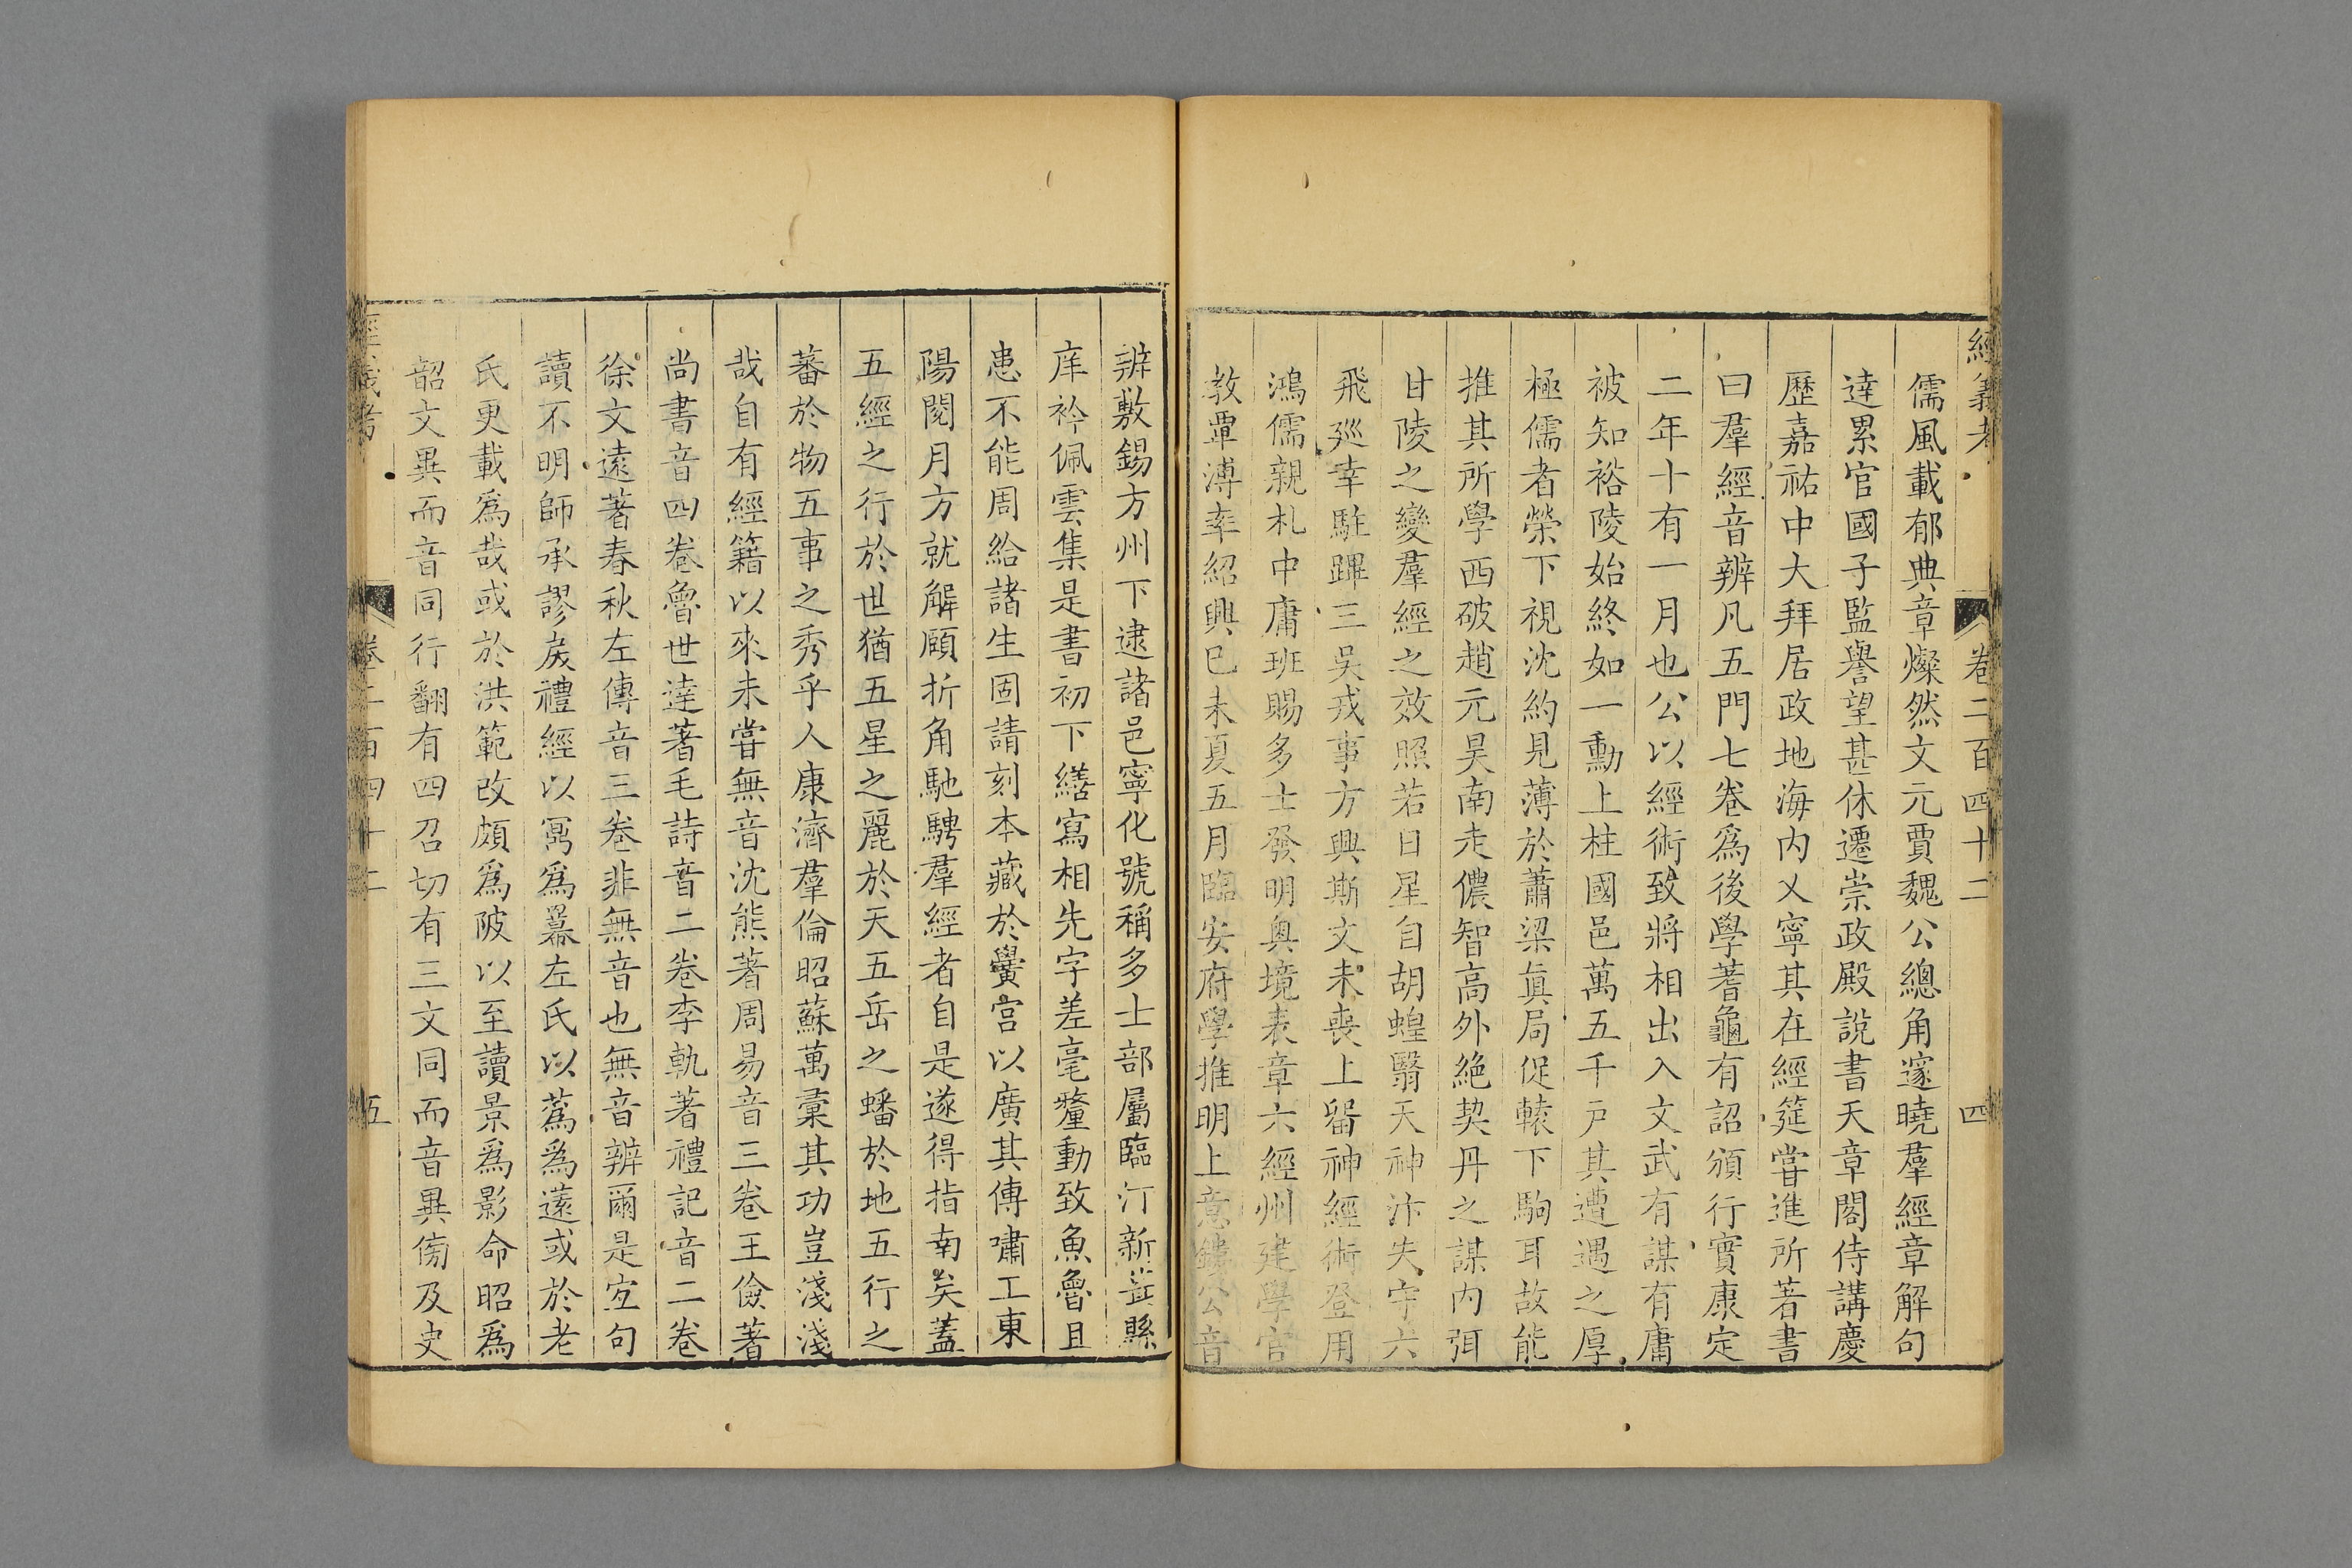 經義考 卷二百四十二 四
儒風載郁典章燦然文元賈魏公總角邃曉羣經章解句
達累官國子監譽望甚休遷崇政殿說書天章閣侍講慶
歷嘉祐中大拜居政地海内乂寧其在經筵嘗進所著書
曰羣經音辨凡五門七卷爲後學蓍龜有詔頒行實康定
二年十有一月也公以經術致將相出入文武有謀有庸
被知裕陵始終如一勳上柱國邑萬五千戸其遭遇之厚
極儒者榮下視沈約見薄於蕭梁眞局促轅下駒耳故能
推其所學西破趙元昊南走儂智高外絶契丹之謀内弭
甘陵之變羣經之效照若日星自胡蝗翳天神汴失守六
飛廵幸駐蹕三吳戎事方興斯文未喪上畱神經術登用
鴻儒親札中庸班賜多士發明奧境表章六經州建學官
教覃溥率紹興巳未夏五月臨安府學推明上意鏤公音
辨敷錫方州下逮諸邑寧化號稱多士部屬臨汀新葺縣
庠衿佩雲集是書初下繕寫相先字差毫釐動致魚魯且
患不能周給諸生固請刻本藏於黌宮以廣其傳嘯工東
陽閱月方就解頤折角馳騁羣經者自是遂得指南矣蓋
五經之行於世猶五星之麗於天五岳之蟠於地五行之
蕃於物五事之秀乎人康濟羣倫昭蘇萬彙其功豈淺淺
哉自有經籍以來未嘗無音沈熊著周易音三卷王儉著
尚書音四卷魯世達著毛詩音二卷李軌著禮記音二卷
徐文遠著春秋左傳音三卷非無音也無音辨爾是宐句
讀不明師承謬戾禮經以冪爲幕左氏以蔿爲薳或於老
氏更載爲哉或於洪範改頗爲陂以至讀景爲影命昭爲
韶文異而音同行翻有四召切有三文同而音異傍及史
經義考 卷二百四十二 五